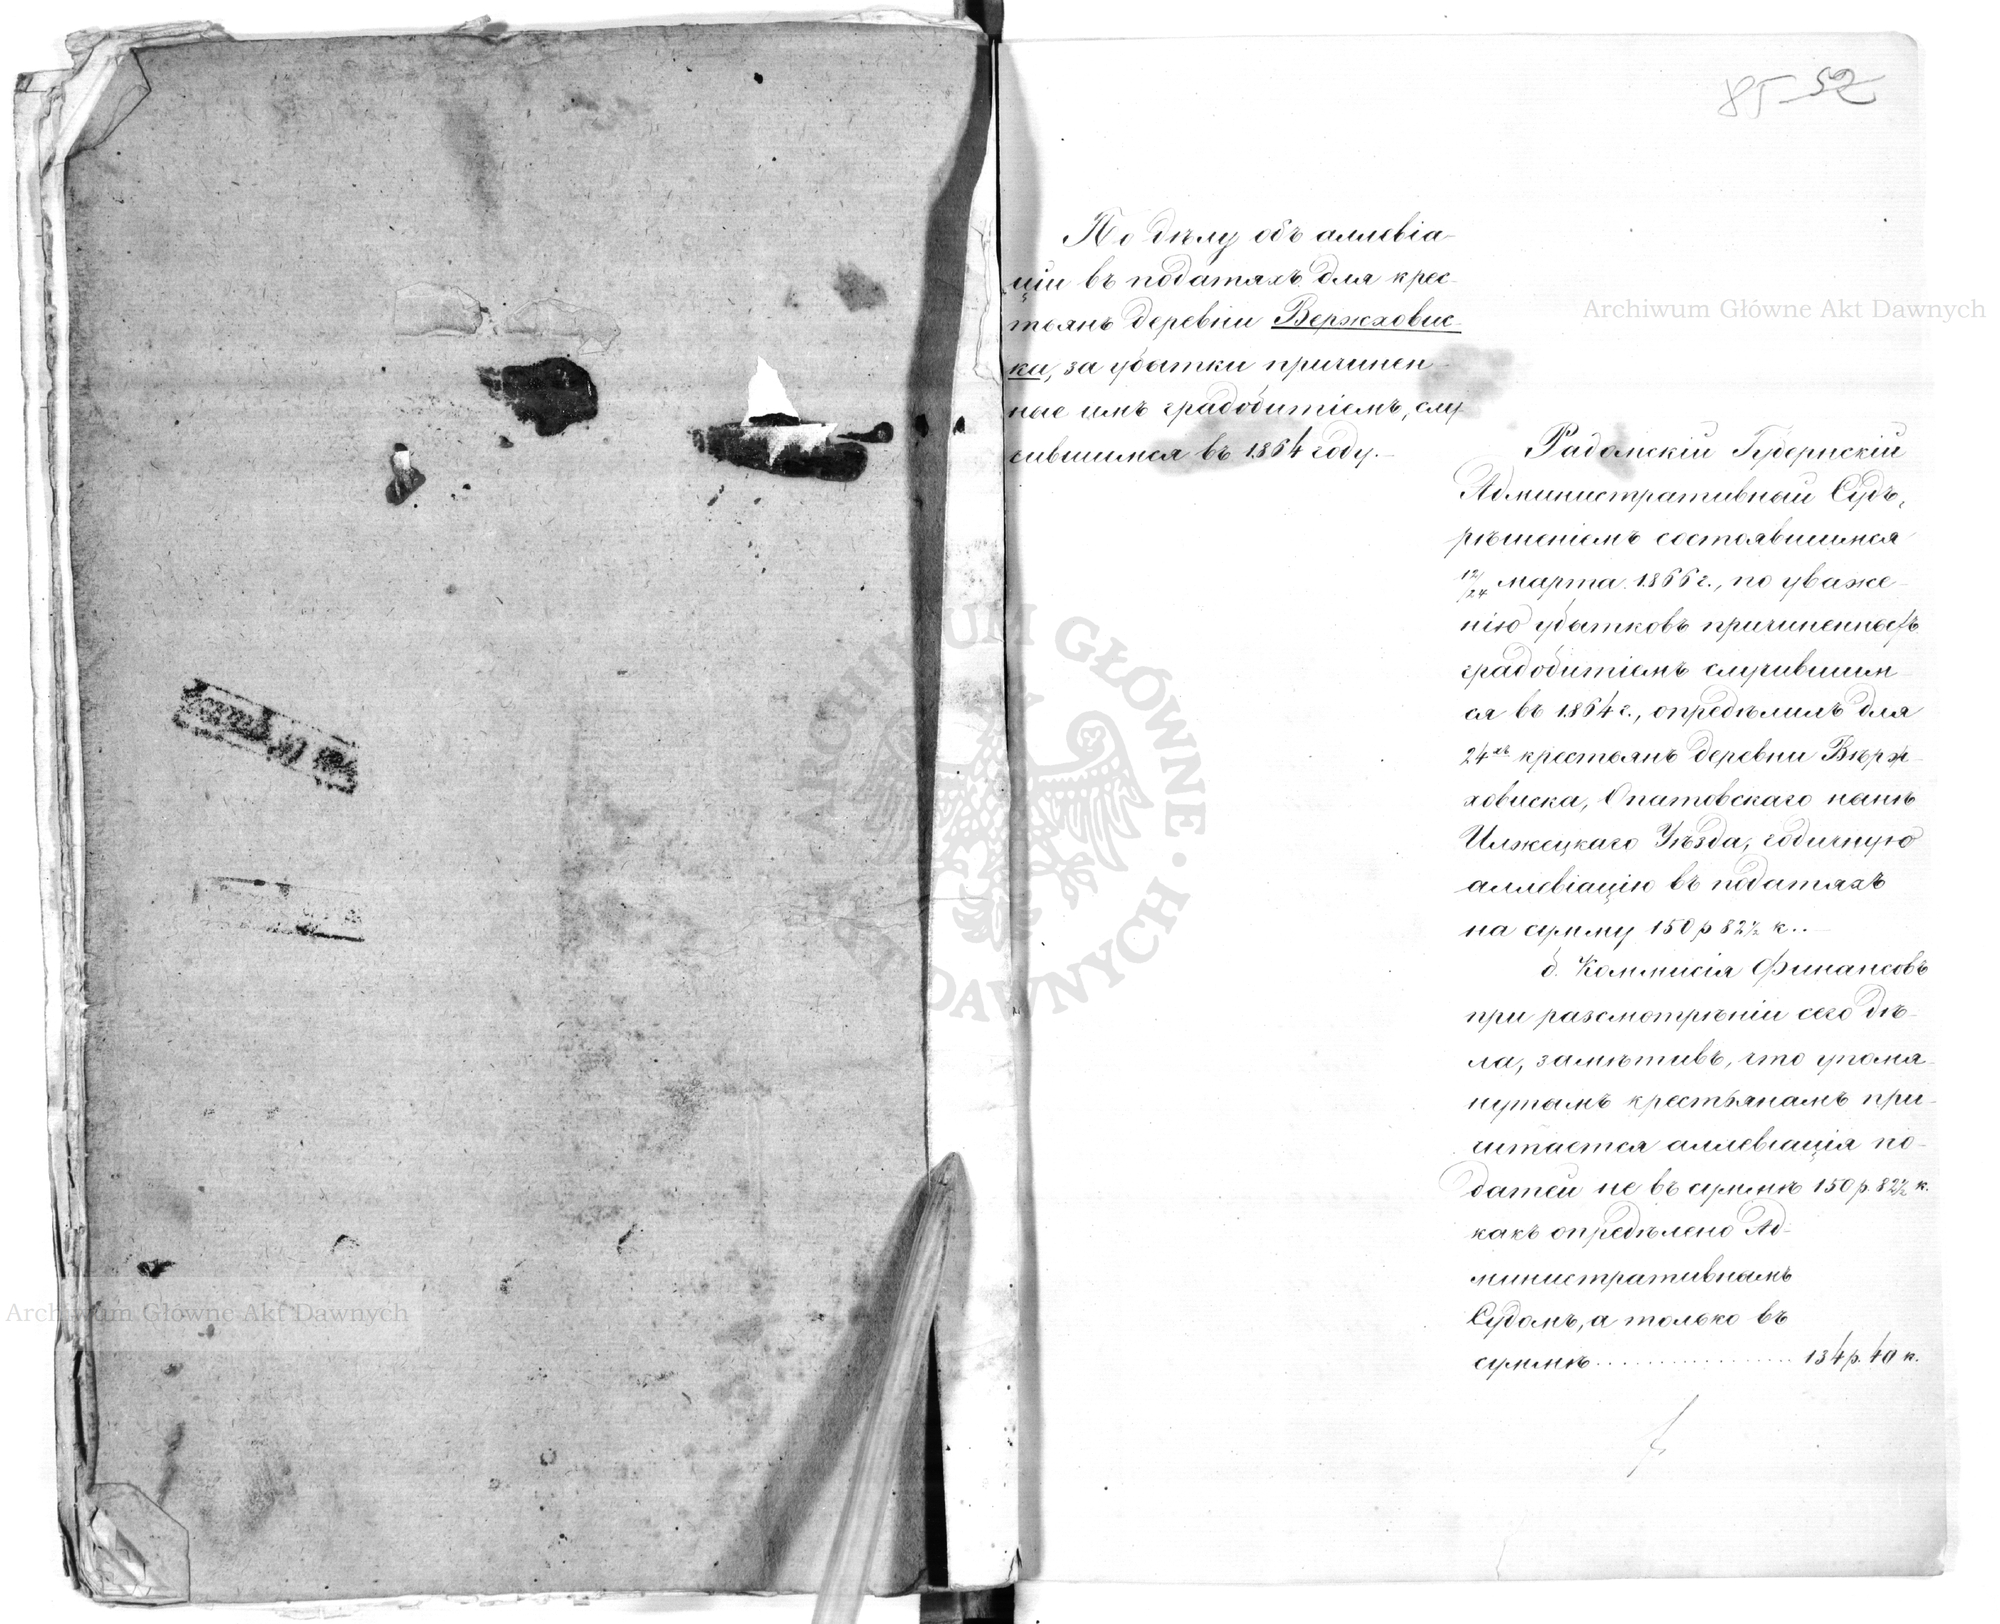 85 52
По дѣлу объ аллевіа-
ціи въ податяхъ для крес-
тьянъ деревни Вержховис-
ка, за убытки причинен-
ные имъ градобитіемъ, слу-
чившимся въ 1864 году.
Радомскій Губернскій
Административный Судъ,
рѣшеніемъ состоявшимся
12/24 марта 1866 г., по уваже-
нію убытковъ причиненныхъ
градобитіемъ случившим-
ся въ 1864 г., опредѣлилъ для
24хъ крестьянъ деревни Вѣрж-
ховиска, Опатовскаго нынѣ
Илжецкаго Уѣзда, годичную
аллевіацію въ податяхъ
на сумму 150 р 82½ к..
б. Коммисія Финансовъ
при разсмотрѣніи сего дѣ-
ла, замѣтивъ, что упомя-
нутымъ крестьянамъ при-
читается аллевіація по-
датей не въ суммѣ 150 р. 82½ к.
какъ опредѣлено Ад-
министративнымъ
Судомъ, а только въ
суммѣ .................. 134 р. 40 к.
Archiwum Główne Akt Dawnych
Archiwum Główne Akt Dawnych
ARCHIWUM GŁÓWNE AKT DAWNYCH